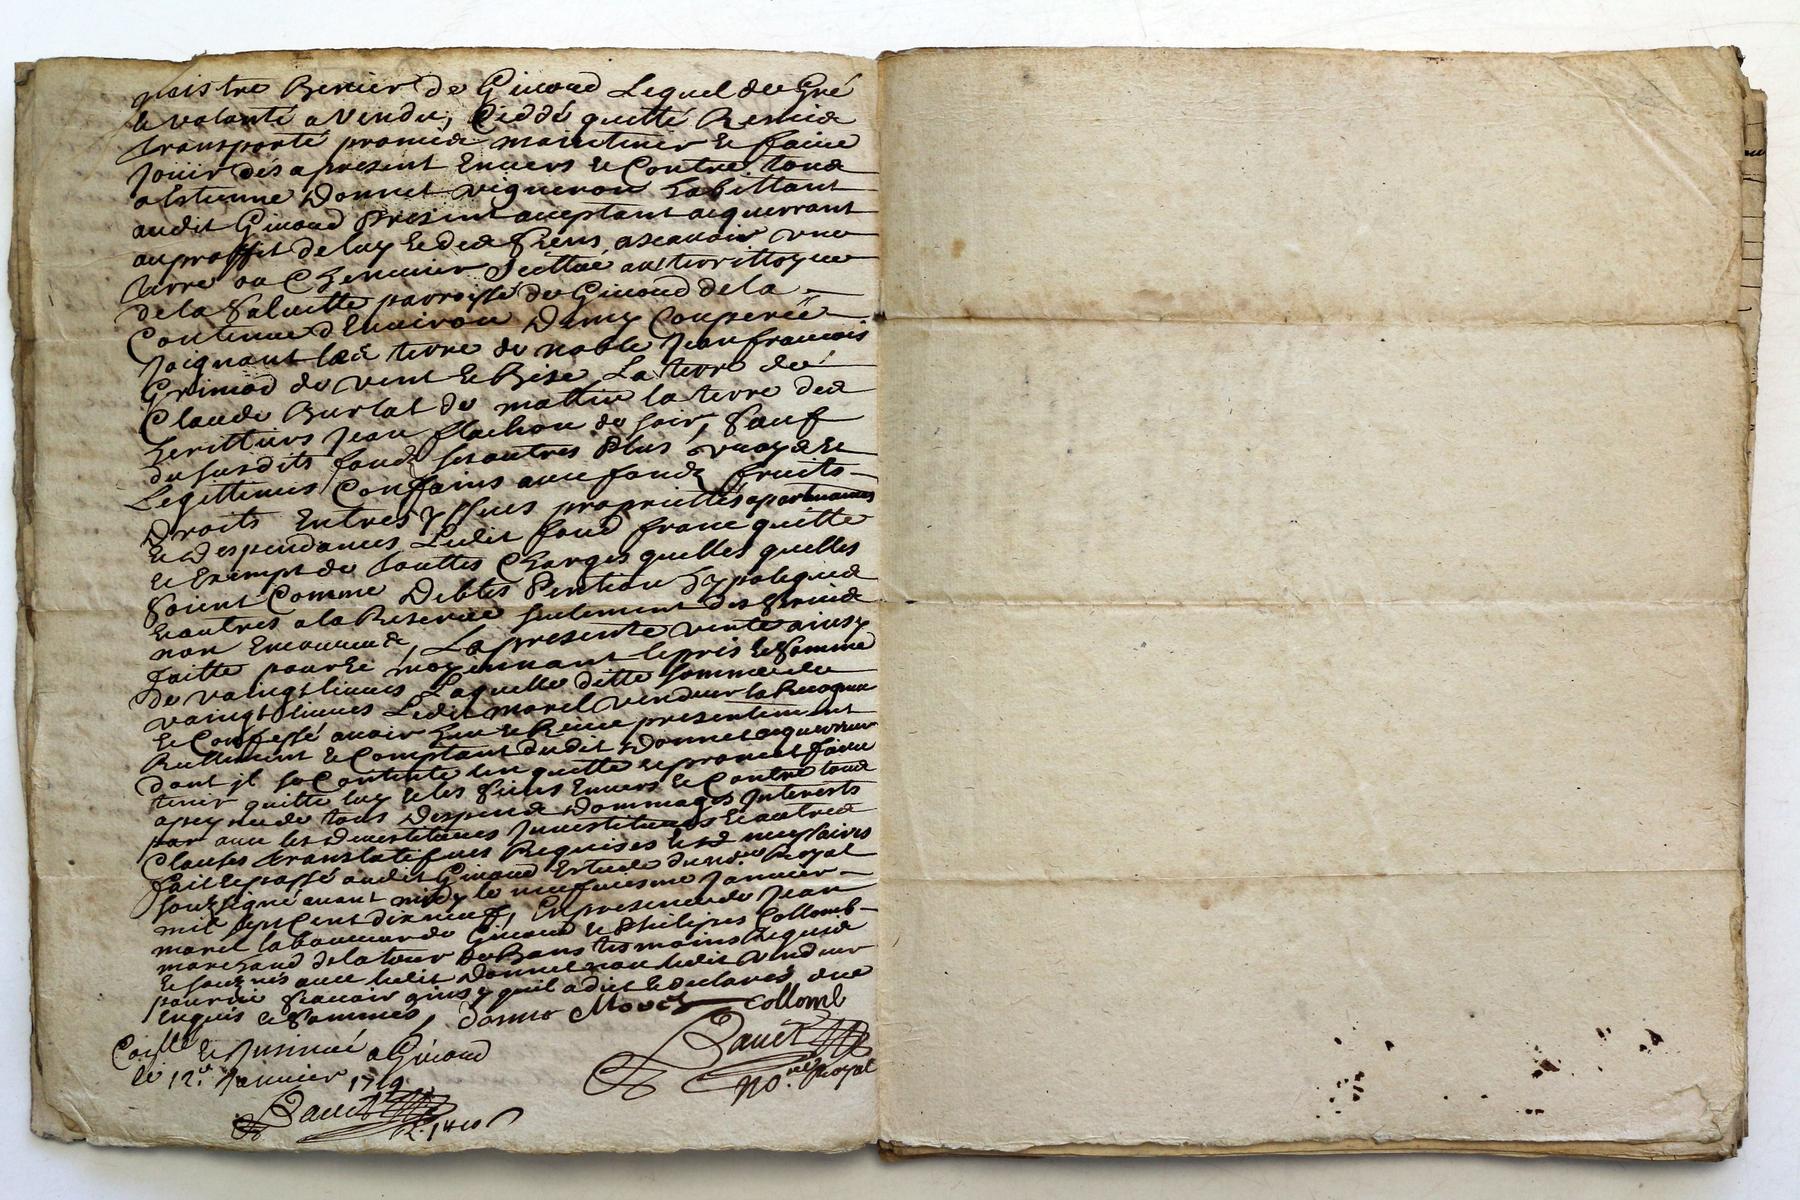 maistre Bercier de Givord Lequel de Gré
& volonté a vendu, Ceddé quitté Remis &
transporté promis & maintenir & faire
Jouir dés apresent Envers & Contre tous
a Estienne Donnet vigneron habittant
audit Givord present acceptant acquerrant
au proffit de luy & des Siens, ascavoir une
terre ou Chenevier Scittué au territtoyre
de la paroisse de Givord de la
Contenue d'Environ Demy Couperée
Joignant la terre de noble Jean francois
Grimod de vent & Bise La terre de
Claude Burlat de mattin la terre des
herittiers Jean flachon de soir, Sauf
du susdits fond ses autres Plus vrays &
Legittimes Confains avec fonds fruits
Droits Entrés yssues propriettés apartenances
& Despendances Ledit fond franc quitte
& Exempt de touttes Charges quelles quelles
Soient Comme Debtes Pention hypoteques
& autres a la Reserve seulement des Servis
non Encourus, La presente vente ainsy
faitte pour & moyennant le pris & Somme
de vaingt livres Laquelle ditte somme de
vaingt livres Ledit morel vendeur la Recognu
& Confessé avoir heu & Receu presentement
Reellement & Comptant dudit Donnet acquereur
dont jl se Contente len quitte & promet faire
tenir quitte luy & les Siens Envers & Contre tous
a peyne de tous Despens Dommages Interests
par avec les Devestitures Investitures & autres
Clauses translatifves Requises & necessaires
fait & passé audit Givord Estude du no.re Royal
soubsigné avant midy le neufviesme Janvier
mil sept Cent dix neuf, En presence de Jean
morel laboureur de Givord & Philipes Collomb
marchand de la tour de tesmoins Requis
& soubsnés avec ledit Donnet non ledit vendeur
pour ne Scavoir ainsy quil a dit & declaré, due
Enquis & Sommés, donno Morel Collomb
Bauet
no.re Royal
& Insinué a Givord
le 12.e Janvier 1719
Bauet